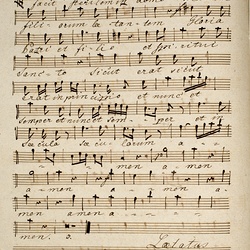 facit sterilem in domo
filiorum lætantem Gloria
patri et filio et spiritui
sancto sicut erat sicut
erat in principio et nunc et
semper et nunc et semper et in
sæcula sæculorum a-
amen a men
a- men a- men a-
men amen a-
men.
Lætatus